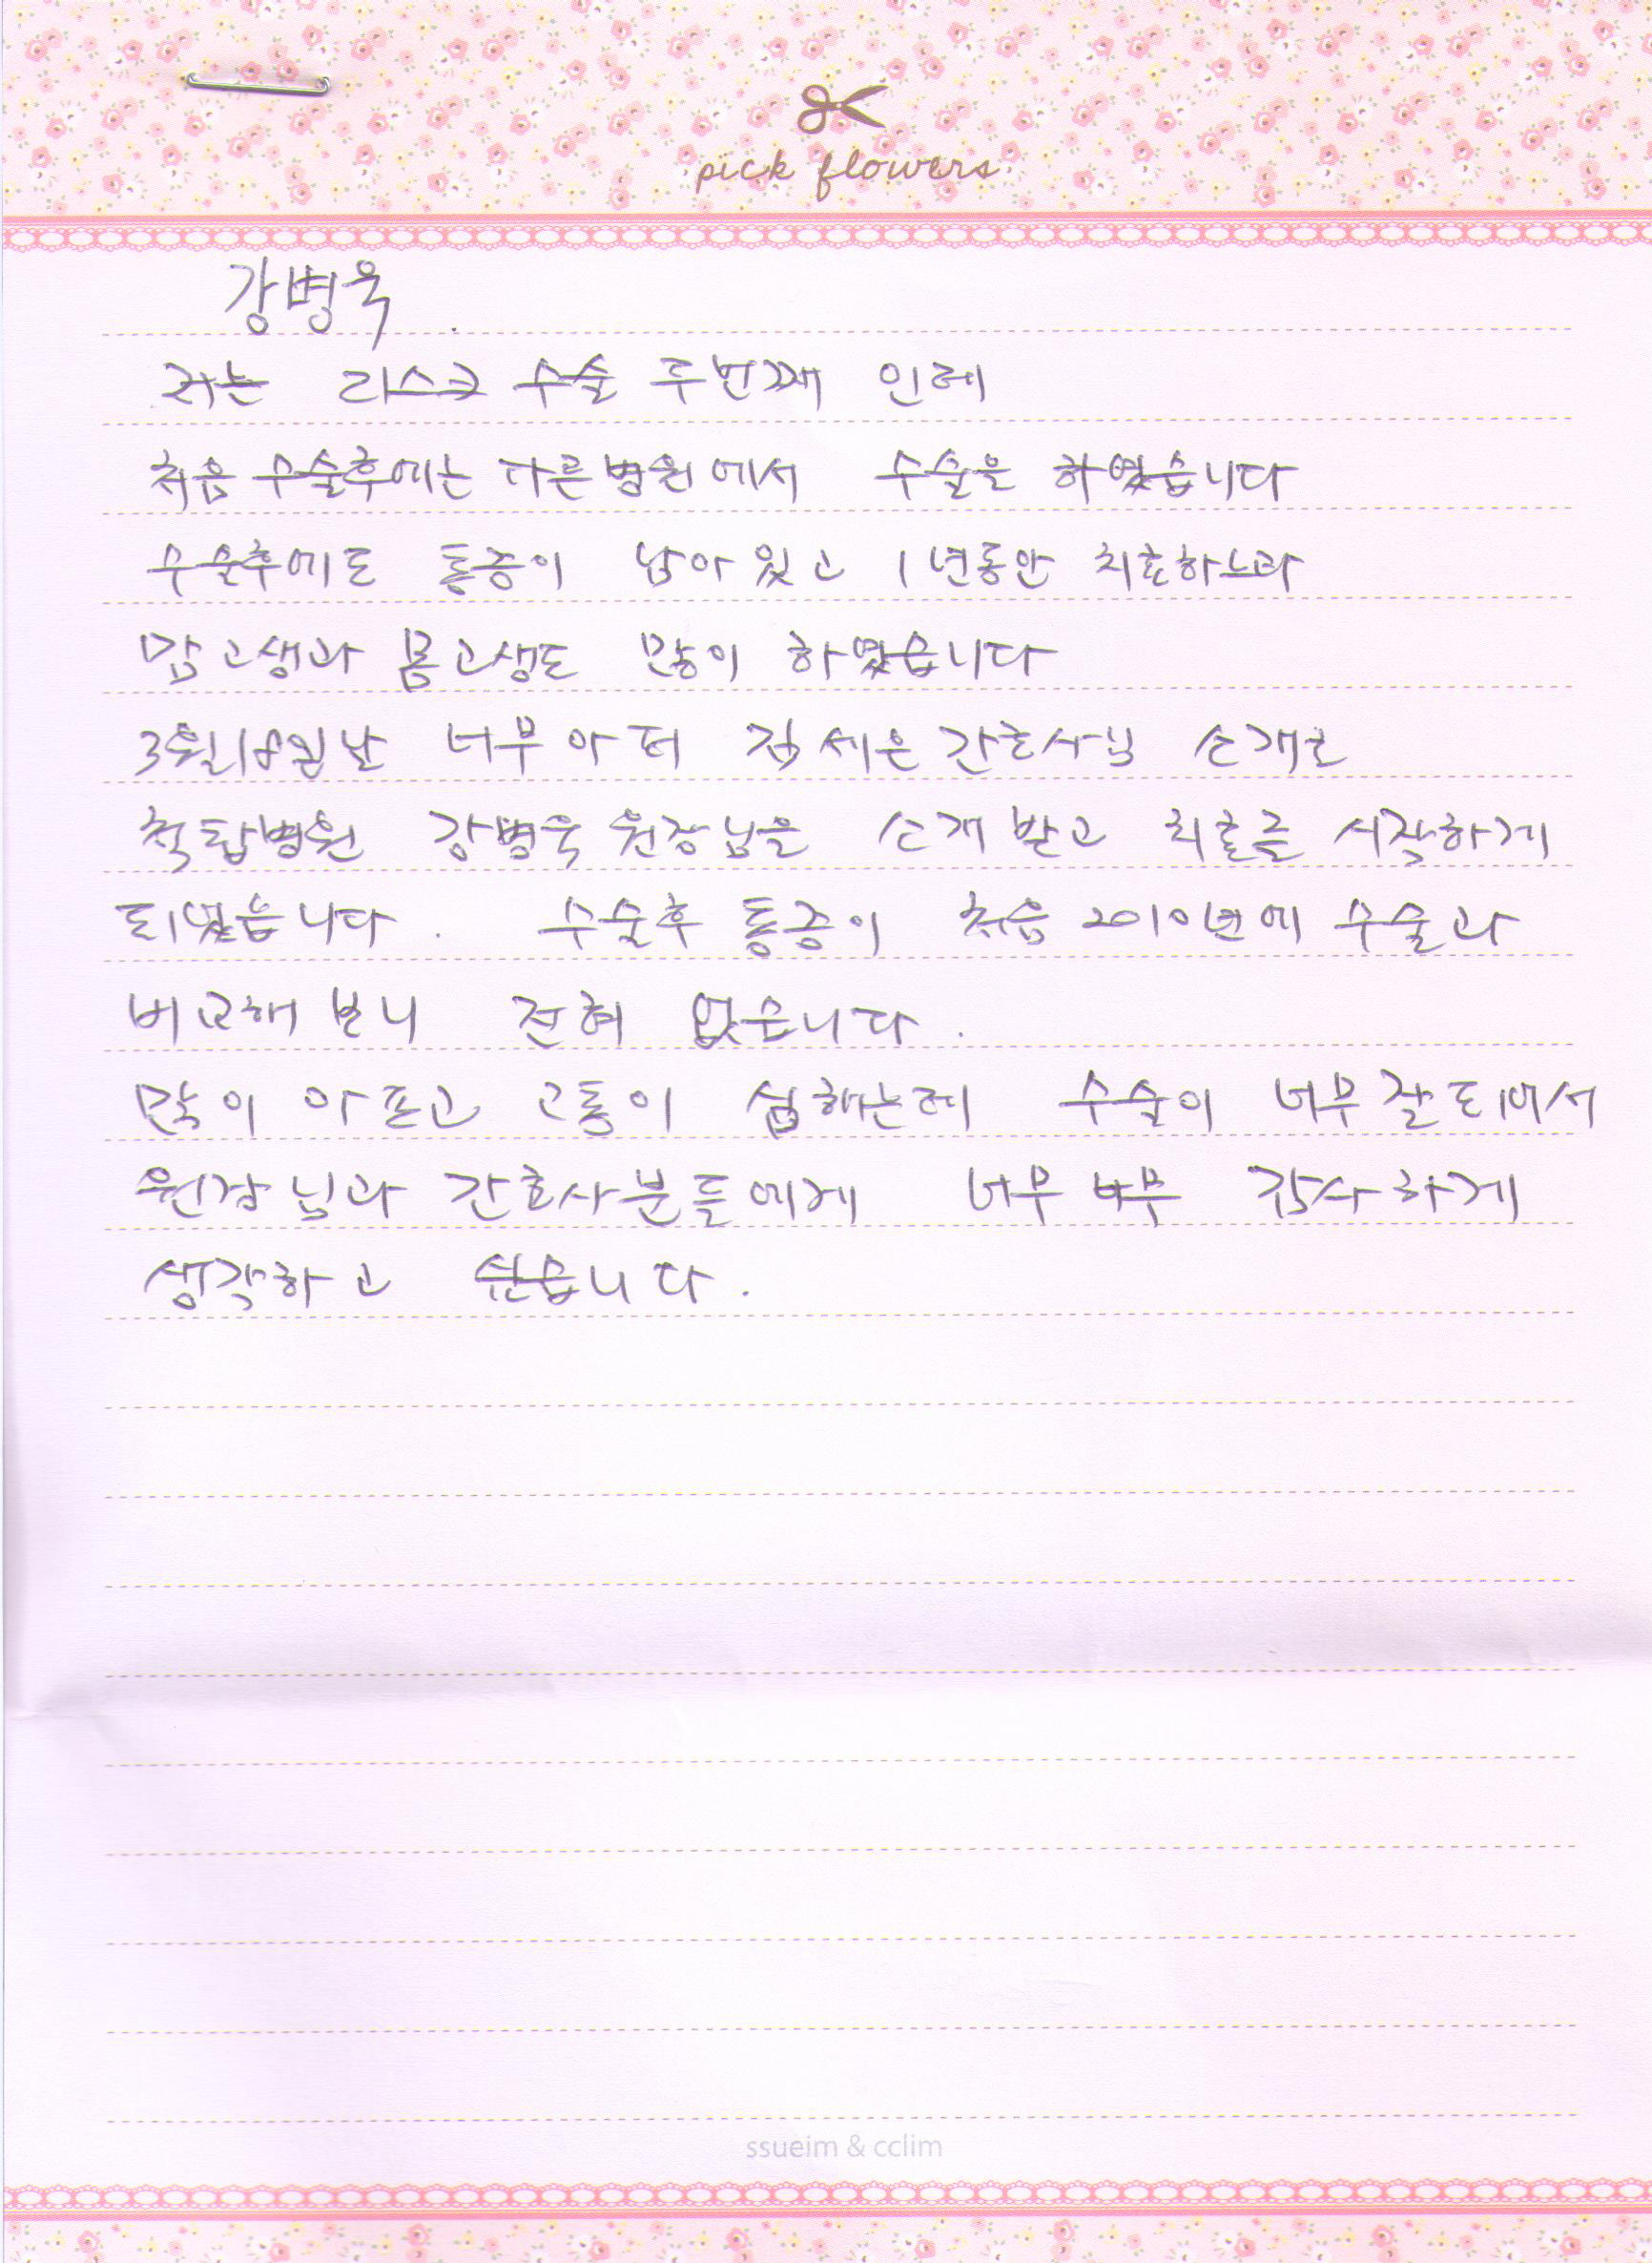 pick flowers
강병욱
저는 디스크 수술 두번째 인데
처음 수술후에는 다른병원에서 수술을 하였습니다
수술후에도 통증이 남아있고 1년동안 치료하느라
맘고생과 몸고생도 많이 하였습니다
3월18일날 너무아퍼 김세은간호사님 소개로
척탑병원 강병욱원장님을 소개받고 치료를 시작하게
되였습니다. 수술후 통증이 처음 2010년에 수술과
비교해보니 전혀 없습니다.
많이 아프고 고통이 심했는데 수술이 너무잘되어서
원장님과 간호사분들에게 너무너무 감사하게
생각하고 싶습니다.
ssueim & cclim